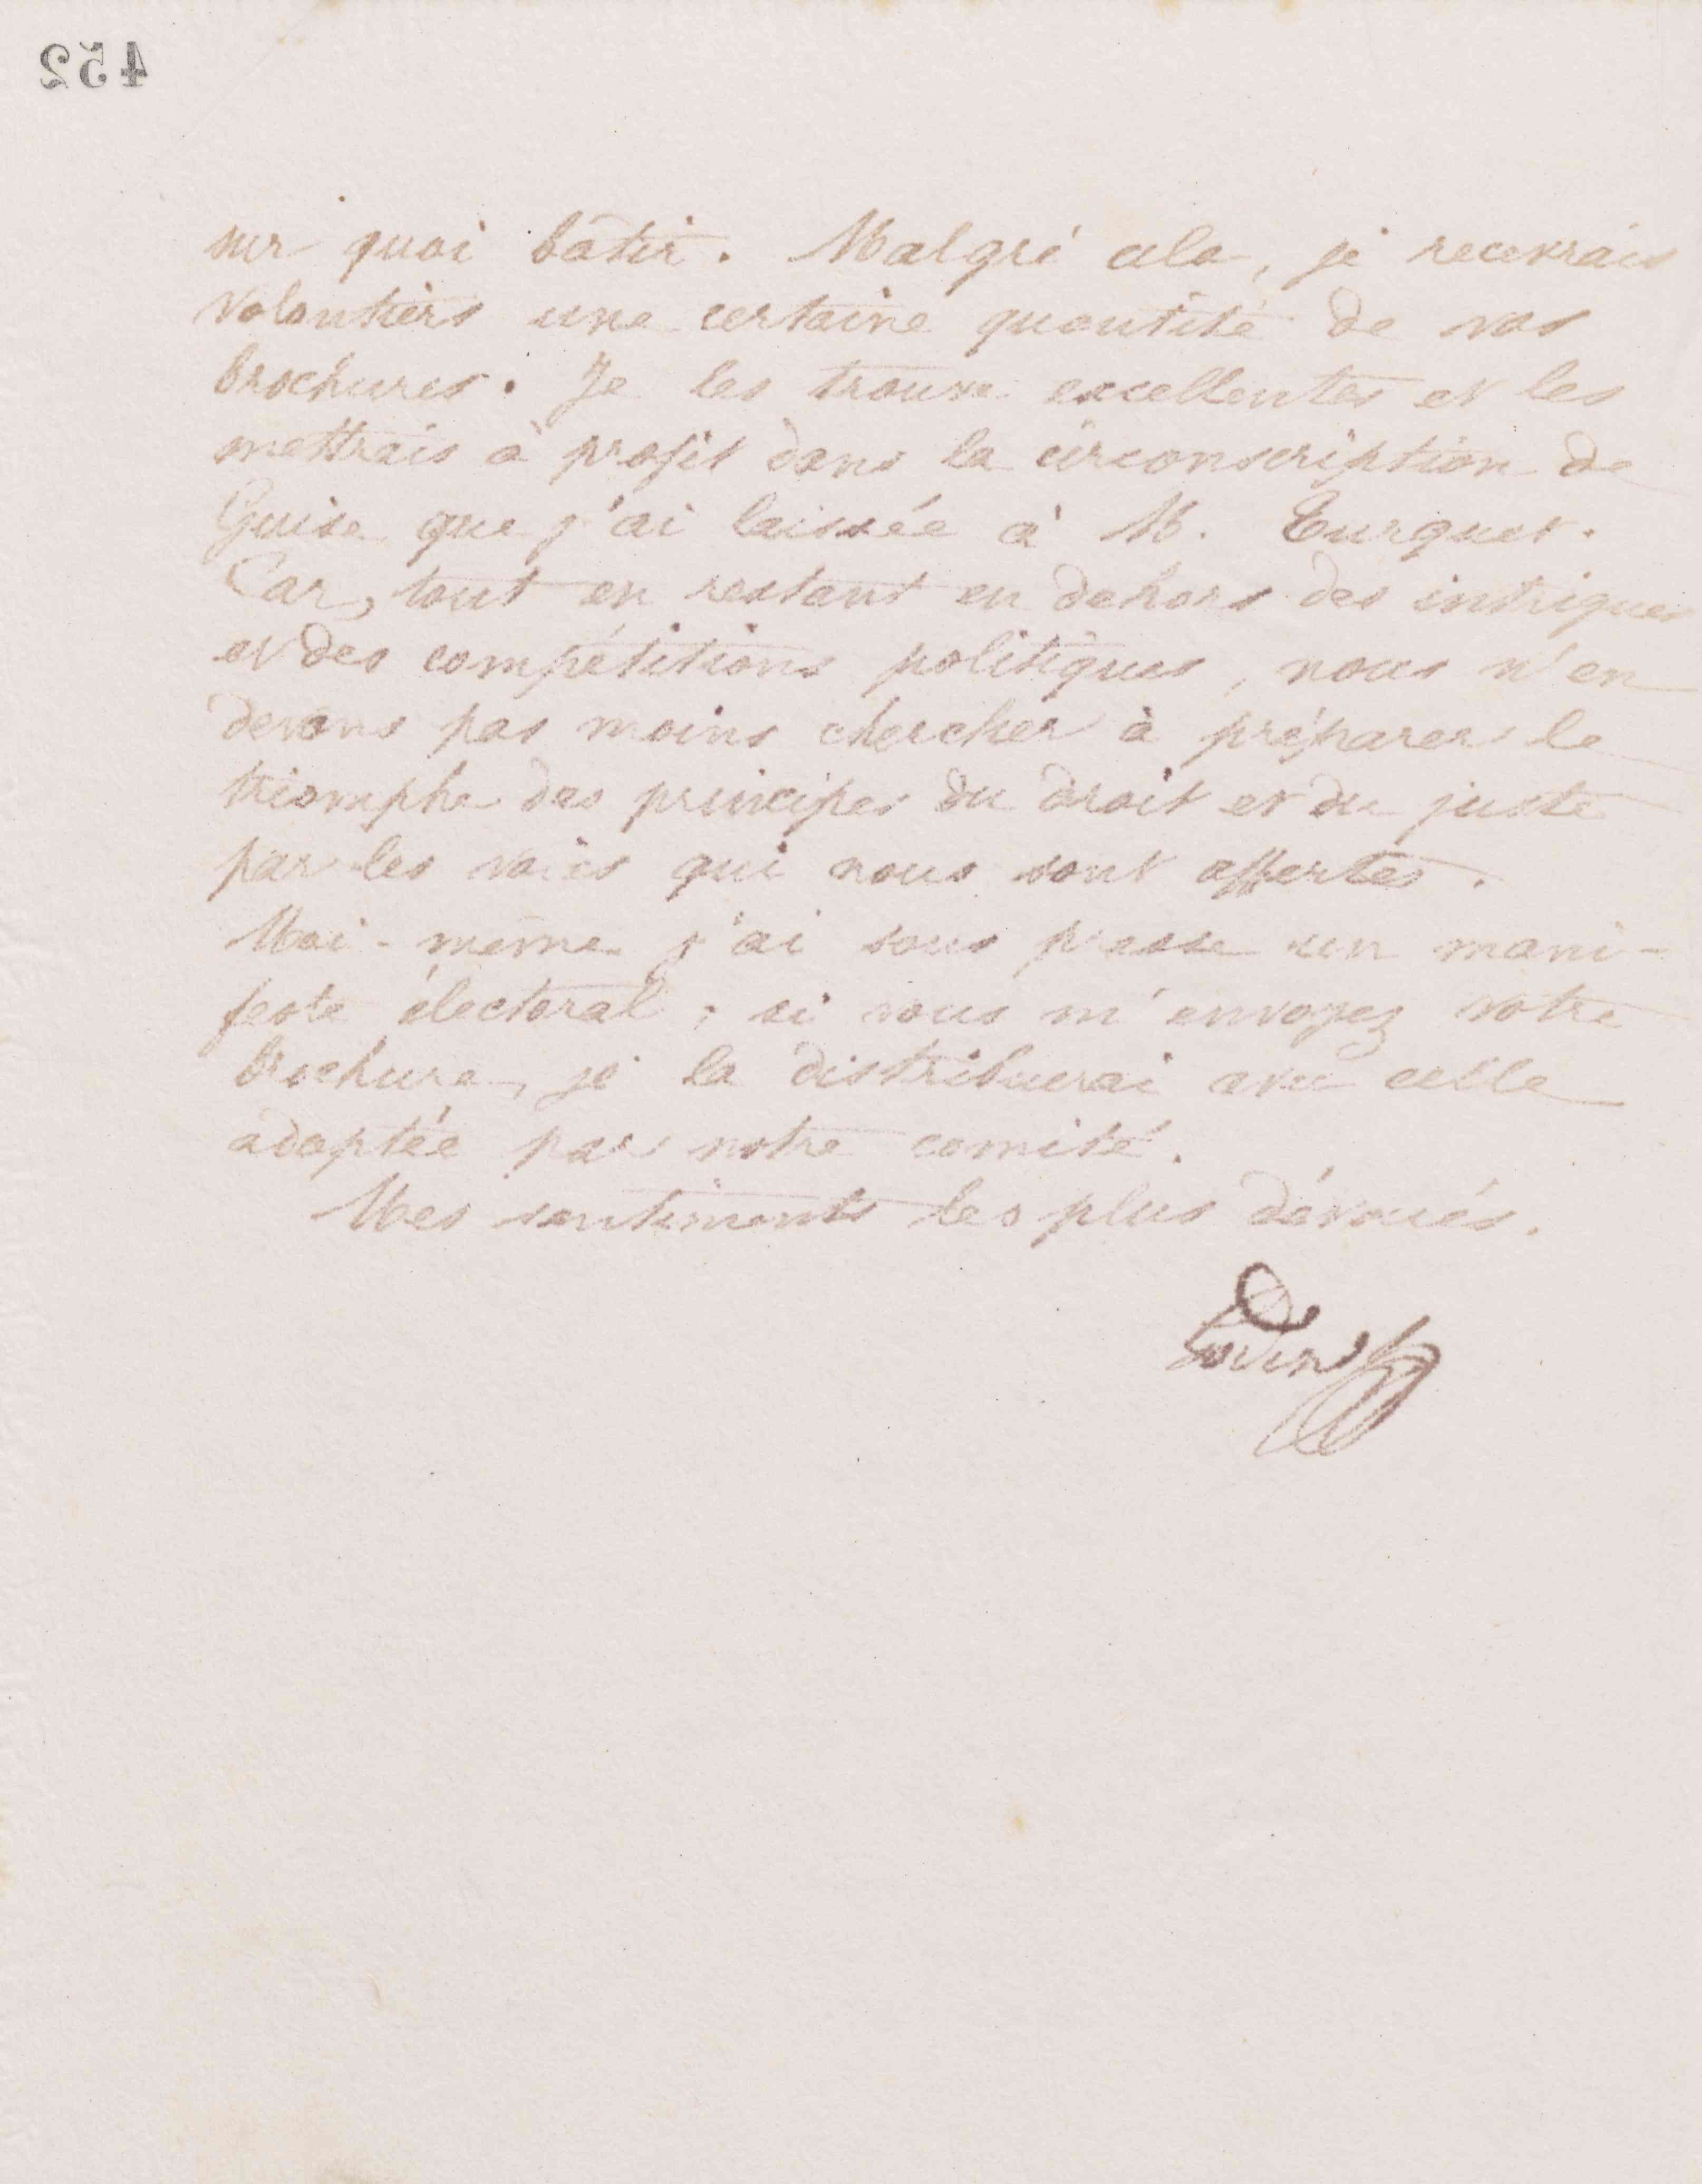 452
sur quoi bâtir. Malgré cela, je recevrais
volontiers une certaine quantité de vos
brochures. Je les trouve excellentes et les
mettrais à profit dans la circonscription de
Guise que j'ai laissée à M. Turquet.
Car, tout en restant en dehors des intrigues
et des compétitions politiques, nous n'en
devons pas moins chercher à préparer le
triomphe des principes du droit et du juste
par les voies qui nous sont offertes.
Moi-même j'ai sous presse un mani-
feste électoral ; si vous m'envoyez votre
brochure, je la distribuerai avec celle
adoptée par notre comité.
Mes sentiments les plus dévoués.
Godin